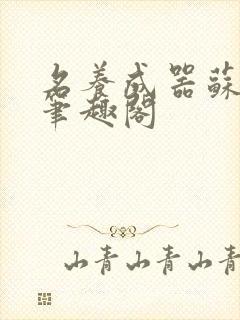 名養成器蘇
筆趣閣
山青山青山青